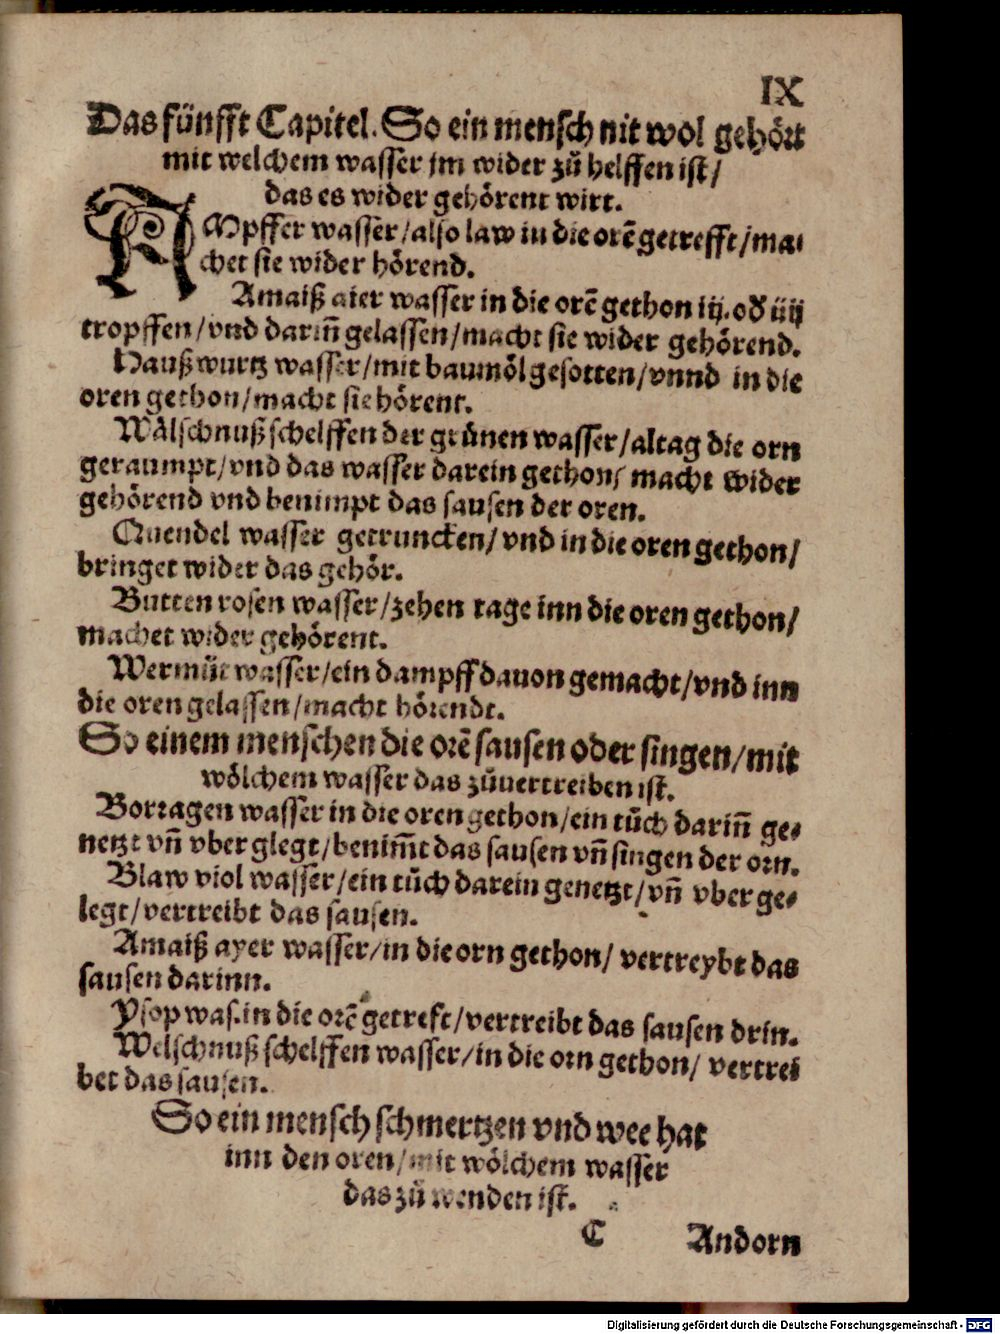 IX
Das fünfft Capitel. So ein mensch nit wol gehört
mit welchem wasser jm wider zů helffen ist/
das es wider gehörent wirt.
AMpffer wasser/also law in die orẽ getrefft/ma⸗
chet sie wider hörend.
Amaiß aier wasser in die orẽ gethon iij.oď iiij
tropffen/vnd dariñ gelassen/macht sie wider gehörend.
Haußwurtz wasser/mit baumöl gesotten/vnnd in die
oren gethon/macht sie hörent.
Wälschnuß schelffen der grünen wasser/altag die orn
geraumpt/vnd das wasser darein gethon/ macht wider
gehörend vnd benimpt das sausen der oren.
Quendel wasser getruncken/ vnd in die oren gethon/
bringet wider das gehör.
Butten rosen wasser/zehen tage inn die oren gethon/
machet wider gehörent.
Wermůt wasser/ein dampff dauon gemacht/vnd inn
die oren gelassen/macht hörendt.
So einem menschen die orẽ sausen oder singen/mit
wölchem wasser das zůuertreiben ist.
Borragen wasser in die oren gethon/ein tůch dariñ ge⸗
netzt vñ vber glegt/benim̃t das sausen vñ singen der orn.
Blaw viol wasser/ein tůch darein genetzt/vñ vber ge⸗
legt/vertreibt das sausen.
Amaiß ayer wasser/in die orn gethon/ vertreybt das
sausen darinn.
Ysop was.in die orẽ getreft/vertreibt das sausen drin.
Welschnuß schelffen wasser/in die orn gethon/ vertrei
bet das sausen.
So ein mensch schmertzen vnd wee hat
inn den oren/mit wölchem wasser
das zů wenden ist.
C Andorn
Digitalisierung gefördert durch die Deutsche Forschungsgemeinschaft - DFG